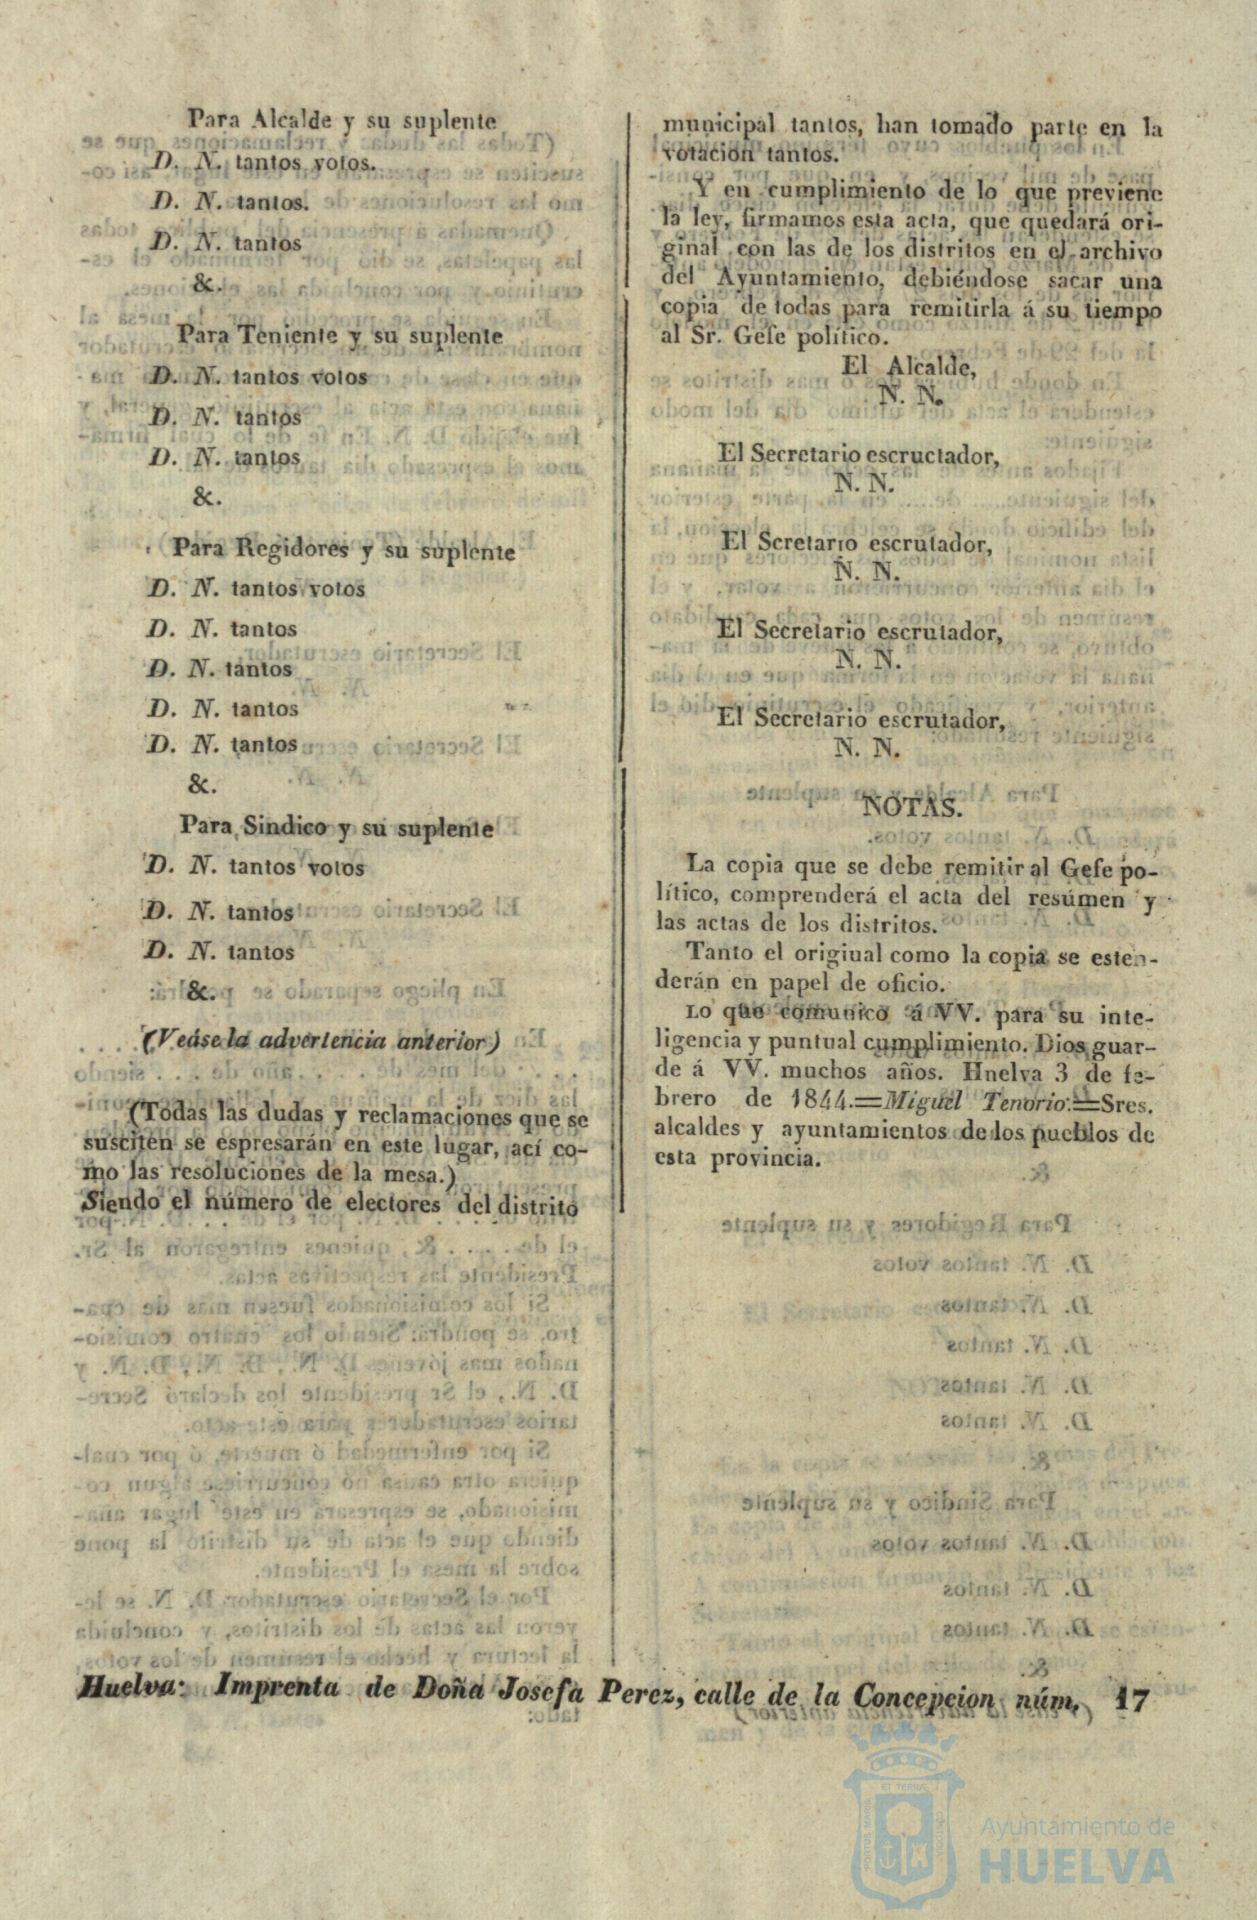 Para Alcalde y su suplente
D. N. tantos votos.
D. N. tantos.
D. N. tantos
&.
Para Teniente y su suplente
D. N. tantos votos
D. N. tantos
D. N. tantos
&.
Para Regidores y su suplente
D. N. tantos votos
D. N. tantos
D. N. tantos
D. N. tantos
D. N. tantos
&.
Para Sindico y su suplente
D. N. tantos votos
D. N. tantos
D. N. tantos
&.
(Veáse la advertencia anterior)
(Todas las dudas y reclamaciones que se
susciten se espresarán en este lugar, ací co-
mo las resoluciones de la mesa.)
Siendo el número de electores del distrito
municipal tantos, han tomado parte en la
votacion tantos.
Y en cumplimiento de lo que previene
la ley, firmamos esta acta, que quedará ori-
ginal con las de los distritos en el archivo
del Ayuntamiento, debiéndose sacar una
copia de todas para remitirla á su tiempo
al Sr. Gefe político.
El Alcalde,
N. N.
El Secretario escructador,
N. N.
El Scretario escrutador,
N. N.
El Secretario escrutador,
N. N.
El Secretario escrutador,
N. N.
NOTAS.
La copia que se debe remitir al Gefe po-
lítico, comprenderá el acta del resúmen y
las actas de los distritos.
Tanto el origiual como la copia se esten-
derán en papel de oficio.
Lo que comunico á VV. para su inte-
ligencia y puntual cumplimiento. Dios guar-
de á VV. muchos años. Huelva 3 de fe-
brero de 1844.=Miguel Tenorio.=Sres.
alcaldes y ayuntamientos de los pueblos de
esta provincia.
Huelva: Imprenta de Doña Josefa Perez, calle de la Concepcion núm. 17
Ayuntamiento de
HUELVA